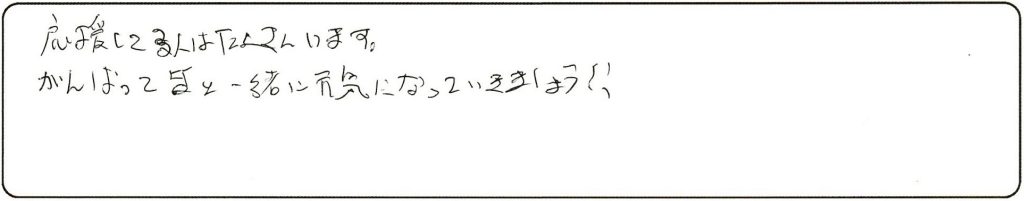 応援してる人はたくさんいます。
がんばって皆と一緒に元気になっていきましょう!!